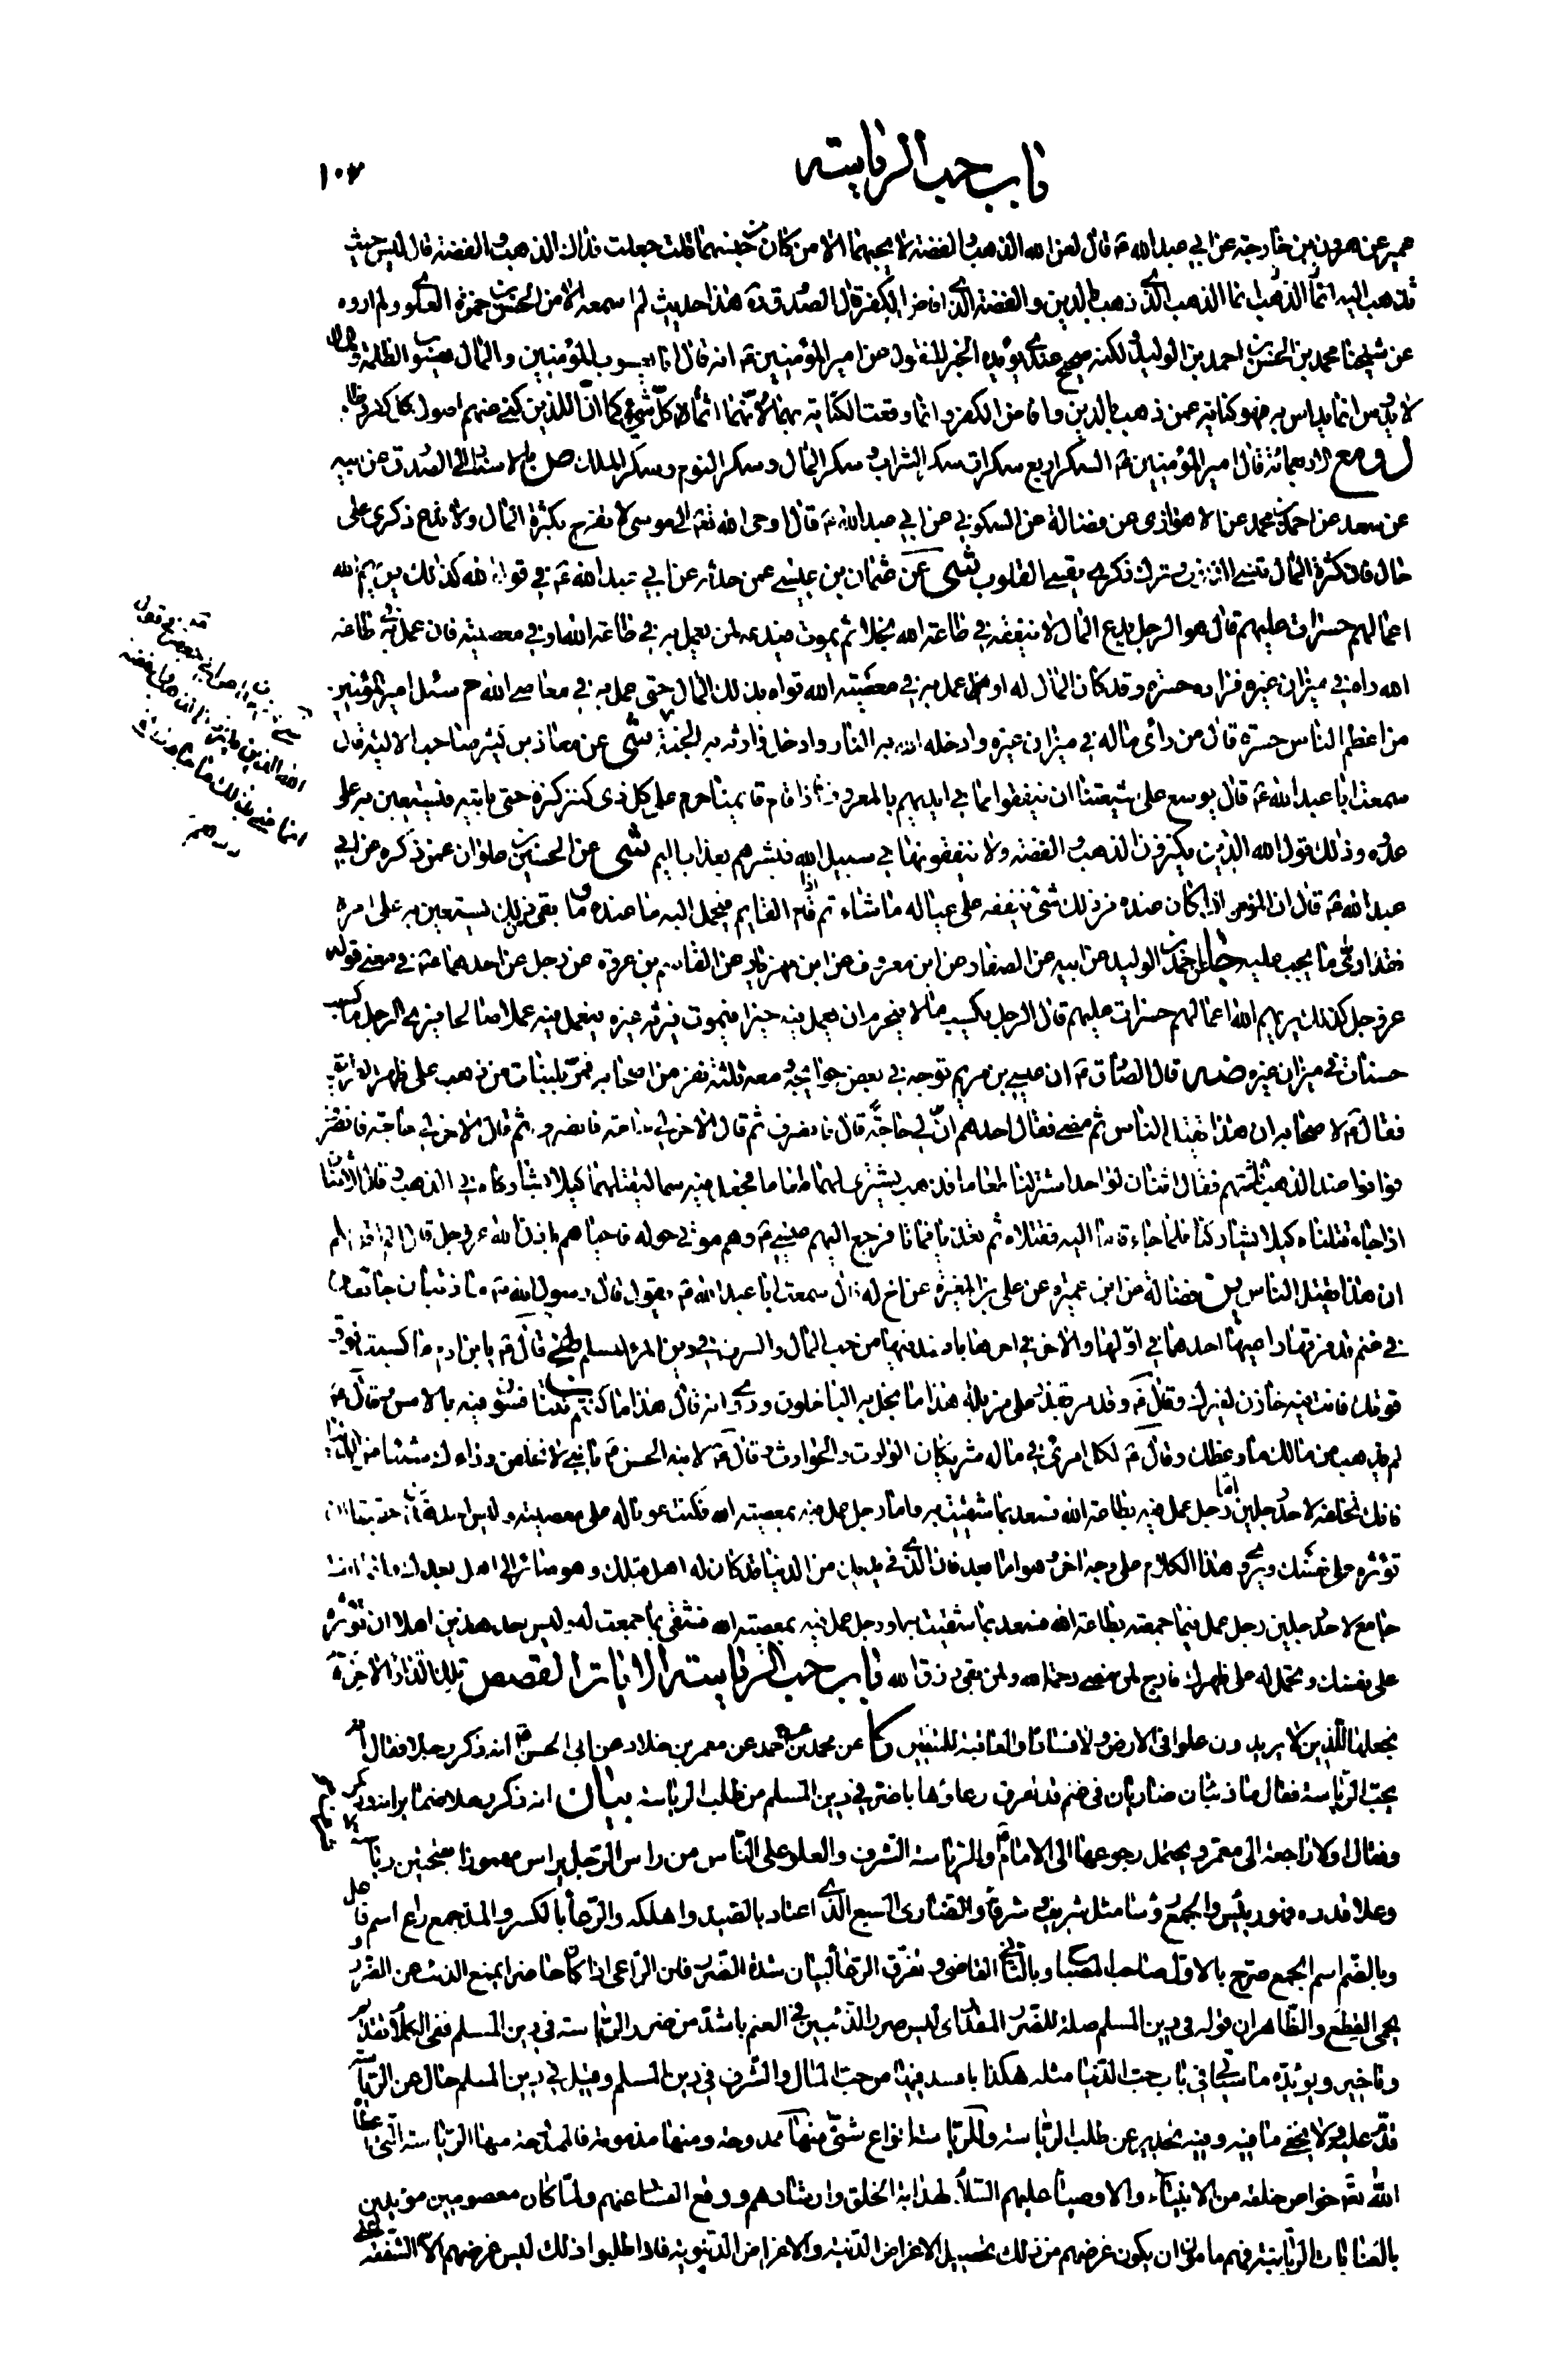 باب حب الرياسة
١٠٧
عمير عن هرون بن خارجة عن ابي عبد الله ع قال لعن الله الذهب والفضة لا يحبهما الا من كان من جنسهما قلت جعلت فداك الذهب والفضة قال ليس حيث
تذهب اليه انما الذهب الذي ذهب بالدين والفضة الذي افاض الكفر قال الصدوق ره هذا حديث لم اسمعه الا من الحسن بن حمزة العلوي ولم اروه
عن شيخنا محمد بن الحسن بن احمد بن الوليد لكنه صحيح عندي يؤيده الخبر المنقول عن امير المؤمنين ع انه قال انا يعسوب المؤمنين والمال يعسوب الظلمة
لا يؤس انما يداس به فهو كناية عمن ذهب بالدين وافاض الكفر وانما وقعت الكناية بهما لانهما اثمان كل شيء كما ان الذين كنى عنهم اصول كل كفر وظلم
ل و مع الاربعمائة قال امير المؤمنين ع السكر اربع سكرات سكر الشراب وسكر المال وسكر النوم وسكر الملك ص بالاسناد الى الصدوق عن ابيه
عن سعد عن احمد بن محمد عن الاهوازي عن فضالة عن السكوني عن ابي عبد الله ع قال اوحى الله تعالى الى موسى لا تفرح بكثرة المال ولا تدع ذكري على
حال فان كثرة المال تنسي الذنوب وترك ذكري يقسي القلوب شى عن عثمان بن عيسى عمن حدثه عن ابي عبد الله ع في قول الله كذلك يريهم الله
اعمالهم حسرات عليهم قال هو الرجل يدع المال لا ينفقه في طاعة الله بخلا ثم يموت فيدعه لمن يعمل به في طاعة الله او في معصيته فان عمل به في طاعة
الله راه في ميزان غيره فزاده حسرة وقد كان المال له او من عمل به في معصية الله قواه بذلك المال حتى عمل به في معاصي الله م سئل امير المؤمنين
من اعظم الناس حسرة قال من رأى ماله في ميزان غيره وادخله الله به النار وادخل وارثه به الجنة شى عن معاذ بن كثير صاحب الاكسية قال
سمعت ابا عبد الله ع قال يوسع على شيعتنا ان ينفقوا مما في ايديهم بالمعروف فاذا قام قايمنا حرم على كل ذي كنز كنزه حتى ياتيه فيستعين به على
عدوه وذلك قول الله الذين يكنزون الذهب والفضة ولا ينفقونها في سبيل الله فبشرهم بعذاب اليم شى عن الحسين بن علوان عمن ذكره عن ابي
عبد الله ع قال ان المؤمن اذا كان عنده من ذلك شى ينفقه على عياله ما شاء ثم اذا قام القايم فيحمل اليه ما عنده وما بقي من ذلك يستعين به على امره
فقد ادى ما يجب عليه جا احمد بن الوليد عن ابيه عن الصفار عن ابن معروف عن ابن مهزيار عن القاسم بن عروة عن رجل عن احدهما ع في معنى قوله
عز وجل كذلك يريهم الله اعمالهم حسرات عليهم قال الرجل يكسب مالا فيحرم ان يعمل فيه خيرا فيموت فيرثه غيره فيعمل فيه عملا صالحا فيرى الرجل ما كسب
حسنات في ميزان غيره قال الصادق ع ان عيسى بن مريم توجه في بعض حوائجه ومعه ثلثة نفر من اصحابه فمر بلبنات من ذهب على ظهر الطريق
فقال ع لاصحابه ان هذا يقتل الناس ثم مضى فقال احدهم ان لي حاجة قال فانصرف ثم قال الاخر لي حاجة فانصرف ثم قال الاخر لي حاجة فانصرف
فوافوا عند الذهب ثلثتهم فقال اثنان لواحد اشتر لنا طعاما فذهب يشتري لهما طعاما فجعل فيه سما ليقتلهما كيلا يشاركاه في الذهب وقال الاثنان
اذا جاء قتلناه كيلا يشاركنا فلما جاء قاما اليه فقتلاه ثم تغديا فماتا فرجع اليهم عيسى ع وهم موتى حوله فاحياهم باذن الله عز وجل قال الم اقل لكم
ان هذا يقتل الناس ين فضالة عن ابن عميرة عن علي بن المغيرة عن اخ له قال سمعت ابا عبد الله ع يقول قال رسول الله ص ما ذئبان جائعان
في غنم قد فرقها راعيها احدهما في اولها والاخر في اخرها بافسد فيها من حب المال والشرف في دين المرء المسلم نهج قال ع يا بن ادم ما كسبت فوق
قوتك فانت فيه خازن لغيرك وقال ع وقد مر بقذر على مزبلة هذا ما بخل به الباخلون وروي انه قال هذا ما كنتم تتنافسون فيه بالامس وقال ع
لم يذهب من مالك ما وعظك وقال ع لكل امرئ في ماله شريكان الوارث والحوادث وقال ع لابنه الحسن ع يا بني لا تخلفن وراءك شيئا من الدنيا
فانك تخلفه لاحد رجلين اما رجل عمل فيه بطاعة الله فسعد بما شقيت به واما رجل عمل فيه بمعصية الله فكنت عونا له على معصيته وليس احد هذين حقيقا ان
تؤثره على نفسك ويروى هذا الكلام على وجه اخر وهو اما بعد فان الذي في يديك من الدنيا قد كان له اهل قبلك وهو صائر الى اهل بعدك وانما انت
جامع لاحد رجلين رجل عمل فيما جمعته بطاعة الله فسعد بما شقيت به او رجل عمل فيه بمعصية الله فشقي بما جمعت له وليس احد هذين اهلا ان تؤثره
على نفسك وتحمل له على ظهرك فارج لمن مضى رحمة الله ولمن بقي رزق الله باب حب الرياسة الايات القصص تلك الدار الاخرة
نجعلها للذين لا يريدون علوا في الارض ولا فسادا والعاقبة للمتقين كا عن محمد عن احمد عن معمر بن خلاد عن ابي الحسن ع انه ذكر رجلا فقال انه
يحب الرياسة فقال ما ذئبان ضاريان في غنم قد تفرق رعاؤها باضر في دين المسلم من طلب الرياسة بيان انه ذكر رجلا ضمائر انه وذكر
وفقال اولا راجعة الى معمر ويحتمل رجوعها الى الامام ع والرياسة الشرف والعلو على الناس من راس الرجل يراس مهموزا بفتحتين رياسة
وعلا قدره فهو رئيس والجمع رؤسا مثل شريف وشرفاء والضاري السبع الذي اعتاد بالصيد واهلكه والرعاء بالكسر والمد جمع راع اسم فاعل
وبالضم اسم الجمع صرح بالاول صاحب المصباح وبالثاني القاضي وتفرق الرعاء لبيان شدة الضرر فان الراعي اذا كان حاضرا يمنع الذئب عن الضرر
يحمي القطيع والظاهر ان قوله في دين المسلم صلة للضرر المقدر اي ليس ضرر الذئبين في الغنم باشد من ضرر الرياسة في دين المسلم ففي الكلام تقديم
وتاخير ويؤيده ما سيأتي في باب حب الدنيا مثله هكذا بافسد فيها من حب المال والشرف في دين المسلم وقيل في دين المسلم حال عن الرياسة
قدم عليه ولا يخفى ما فيه وفيه تحذير عن طلب الرياسة وللرياسة انواع شتى منها ممدوحة ومنها مذمومة فالممدوحة منها الرياسة التي اعطاها
الله تعالى خواص خلقه من الانبياء والاوصياء عليهم السلام لهداية الخلق وارشادهم ورفع الفساد عنهم ولما كانوا معصومين مؤيدين
بالعنايات الربانية فهم مامونون ان يكون غرضهم من ذلك تحصيل الاغراض الدنية والاغراض الدنيوية فاذا طلبوا ذلك ليس غرضهم الا الشفقة على